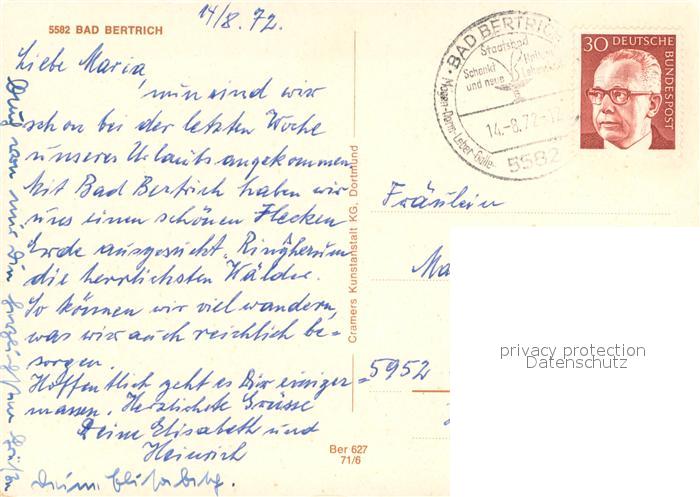 5582 BAD BERTRICH
14/8. 72.
Liebe Maria,
nun sind wir
schon bei der letzten Woche
unseres Urlaubs angekommen
Mit Bad Bertrich haben wir
uns einen schönen Flecken
Erde ausgesucht. Ringsherum
die herrlichsten Wälder.
So können wir viel wandern,
was wir auch reichlich be=
sorgen.
Hoffentlich geht es Dir einiger=
massen. Herzlichste Grüsse
Deine Elisabeth und
Heinrich
Auch von mir Dir
Deine
Cramers Kunstanstalt KG, Dortmund
Ber 627
71/6
BAD BERTRICH
Staatsbad
Schenkt
und neue
Magen-Darm-Leber-Galle
14.-8.72-12
5582
30 DEUTSCHE
BUNDESPOST
Fräulein
Ma
5952
privacy protection
Datenschutz